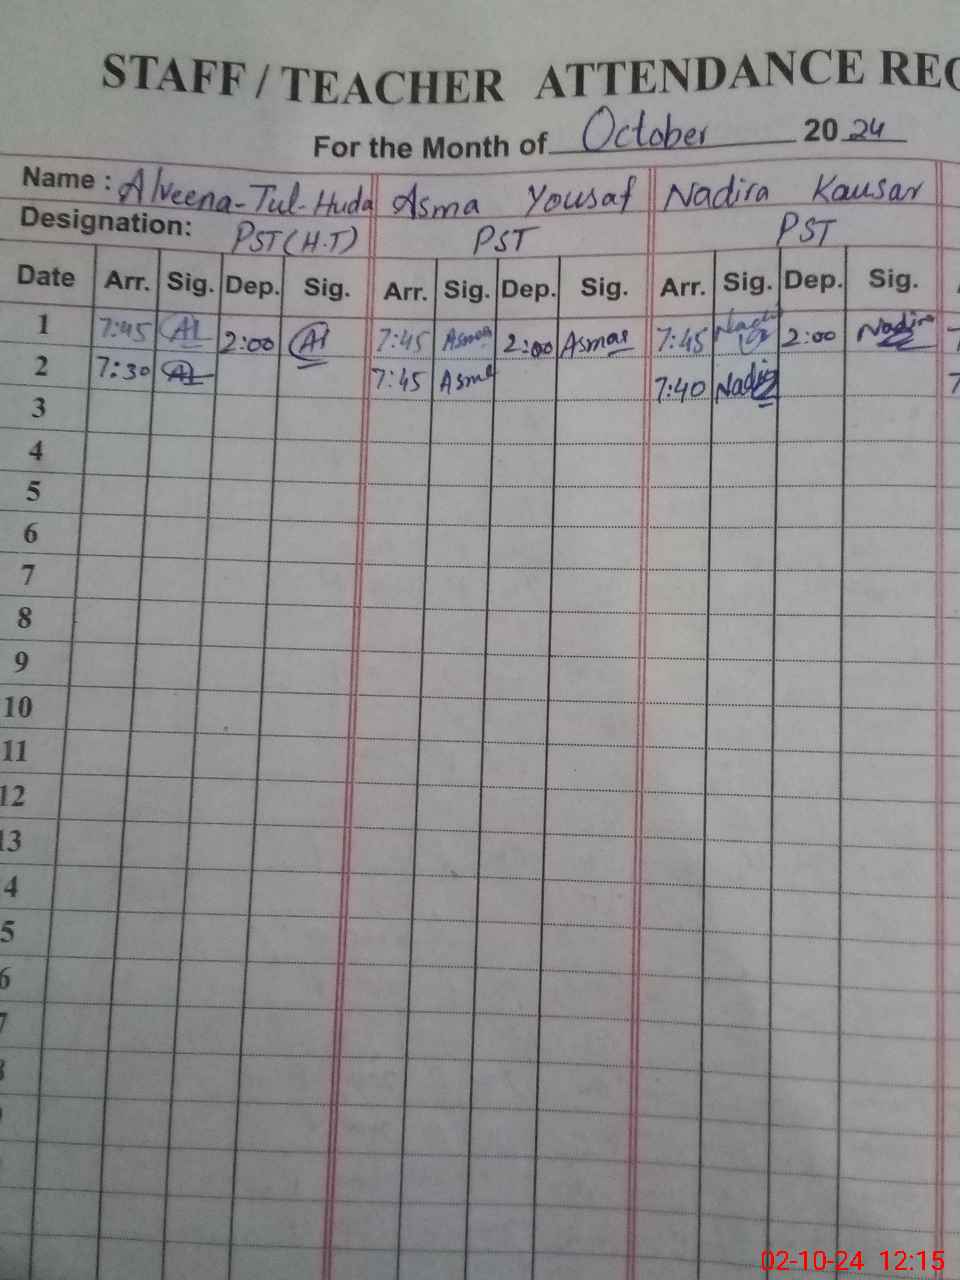 STAFF / TEACHER ATTENDANCE REC
For the Month of October 2024
Name : Alveena-Tul-Huda Asma Yousaf Nadira Kausar
Designation: PST (H.T) PST PST
Date Arr. Sig. Dep. Sig. Arr. Sig. Dep. Sig. Arr. Sig. Dep. Sig.
1 7:45 Al 2:00 Al 7:45 Asma 2:00 Asma 7:45 Nadira 2:00 Nadira 7
2 7:30 Al 7:45 Asma 7:40 Nadira 7
3
4
5
6
7
8
9
10
11
12
13
4
5
6
7
02-10-24 12:15